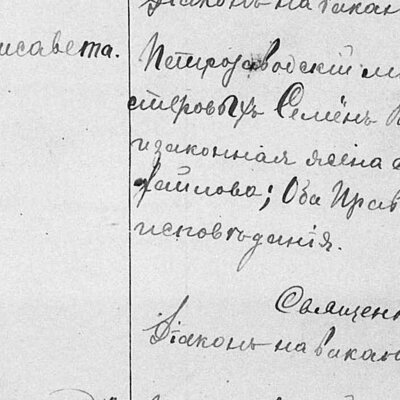 Діаконъ на вакан
исавета.
Петрозаводскій м
стеровыхъ Семенъ
и законная жена
файлова; Оба Прав
исповѣданія.
Священн
Діаконъ на вакан